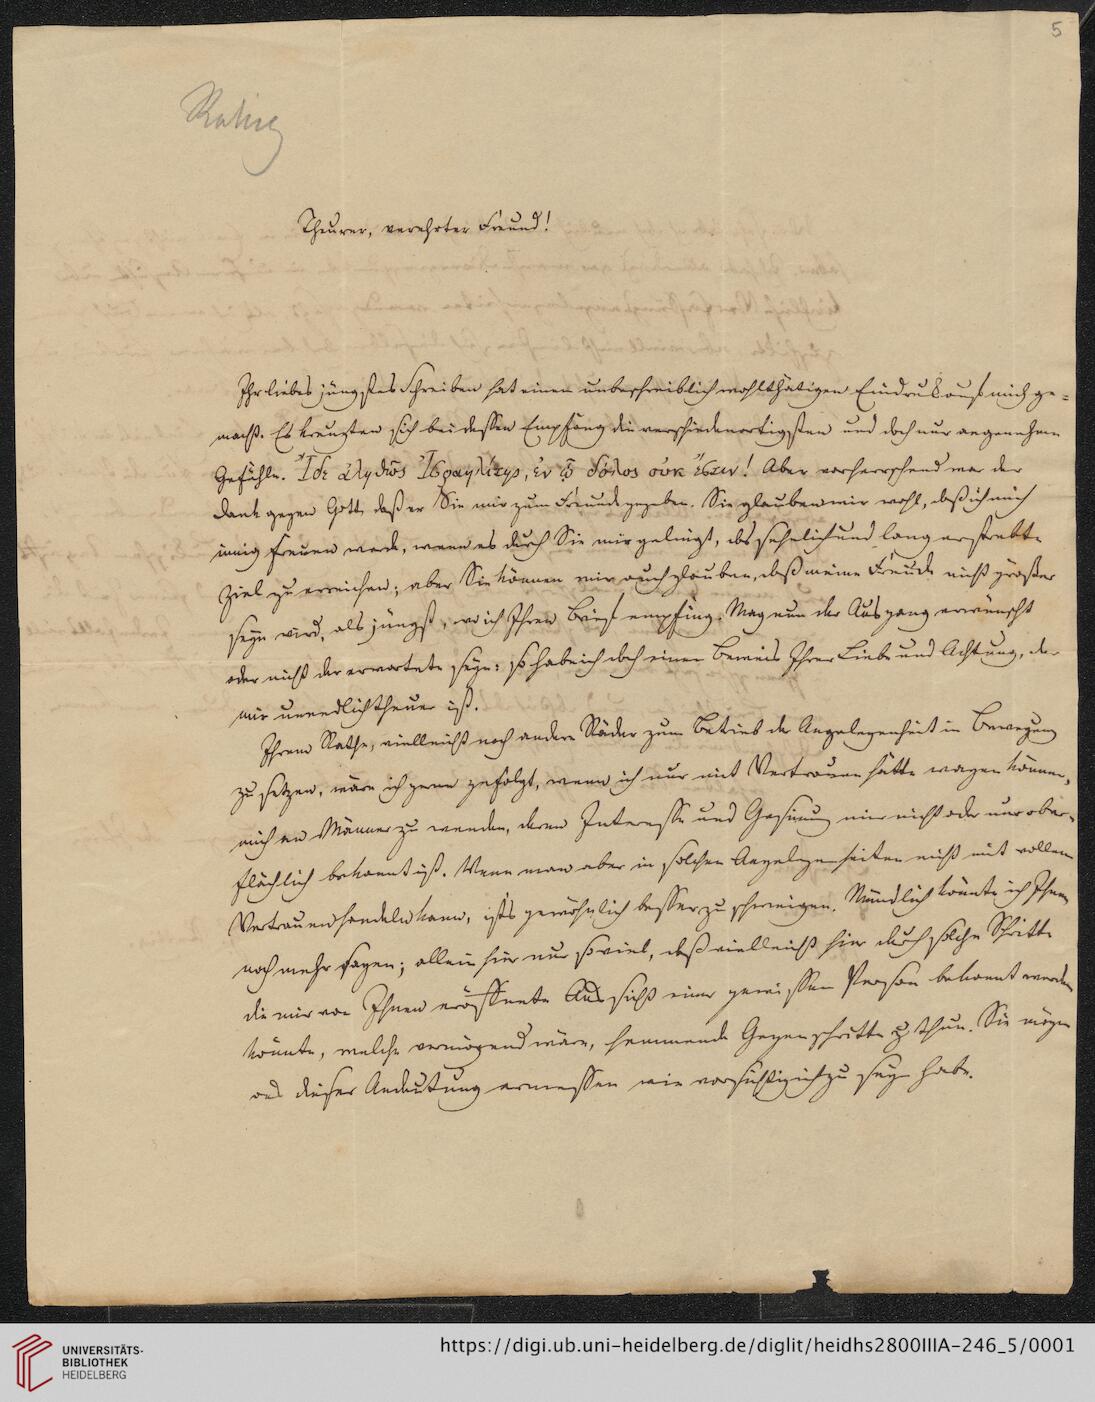 5
Theurer, verehrter Freund!
Ihr liebes jüngstes Schreiben hat einen unbeschreiblich wohlthätigen Eindruk auf mich ge-
macht. Es kreuzten sich bei dessen Empfang die verschiedenartigsten und doch nur angenehme
Gefühle. Ἴδε ἀληθῶς Ἰσραηλίτης, ἐν ᾧ δόλος οὐκ ἔστιν! Aber vorherrschend war der
Dank gegen Gott, daß er Sie mir zum Freunde gegeben. Sie glauben mir wohl, daß ich mich
innig freuen werde, wenn es durch Sie mir gelingt, das sehnlich und lang erstrebte
Ziel zu erreichen; aber Sie können mir auch glauben, daß meine Freude nicht größer
seyn wird, als jüngst, wo ich Ihren Brief empfing. Mag nun der Ausgang erwünscht
oder nicht der erwartete seyn: so habe ich doch einen Beweis Ihrer Liebe und Achtung, der
mir unendlich theuer ist.
Ihrem Rathe, vielleicht noch andere Räder zum Betrieb der Angelegenheit in Bewegung
zu setzen, wäre ich gern gefolgt, wenn ich nur mit Vertrauen hätte wagen können,
mich an Männer zu wenden, deren Interesse und Gesinnung mir nicht oder nur ober-
flächlich bekannt ist. Wenn man aber in solchen Angelegenheiten nicht mit vollem
Vertrauen handeln kann, ists gewöhnlich besser zu schweigen. Mündlich könnte ich Ihnen
noch mehr sagen; allein hier nur so viel, daß vielleicht hier durch solche Schritte
die mir von Ihnen eröffnete Aussicht einer gewissen Person bekannt werden
könnte, welche vermögend wäre, hemmende Gegenschritte zu thun. Sie mögen
aus dieser Andeutung ermessen wie vorsichtig ich zu seyn habe.
UNIVERSITÄTS-
BIBLIOTHEK
HEIDELBERG
https://digi.ub.uni-heidelberg.de/diglit/heidhs2800IIIA-246_5/0001